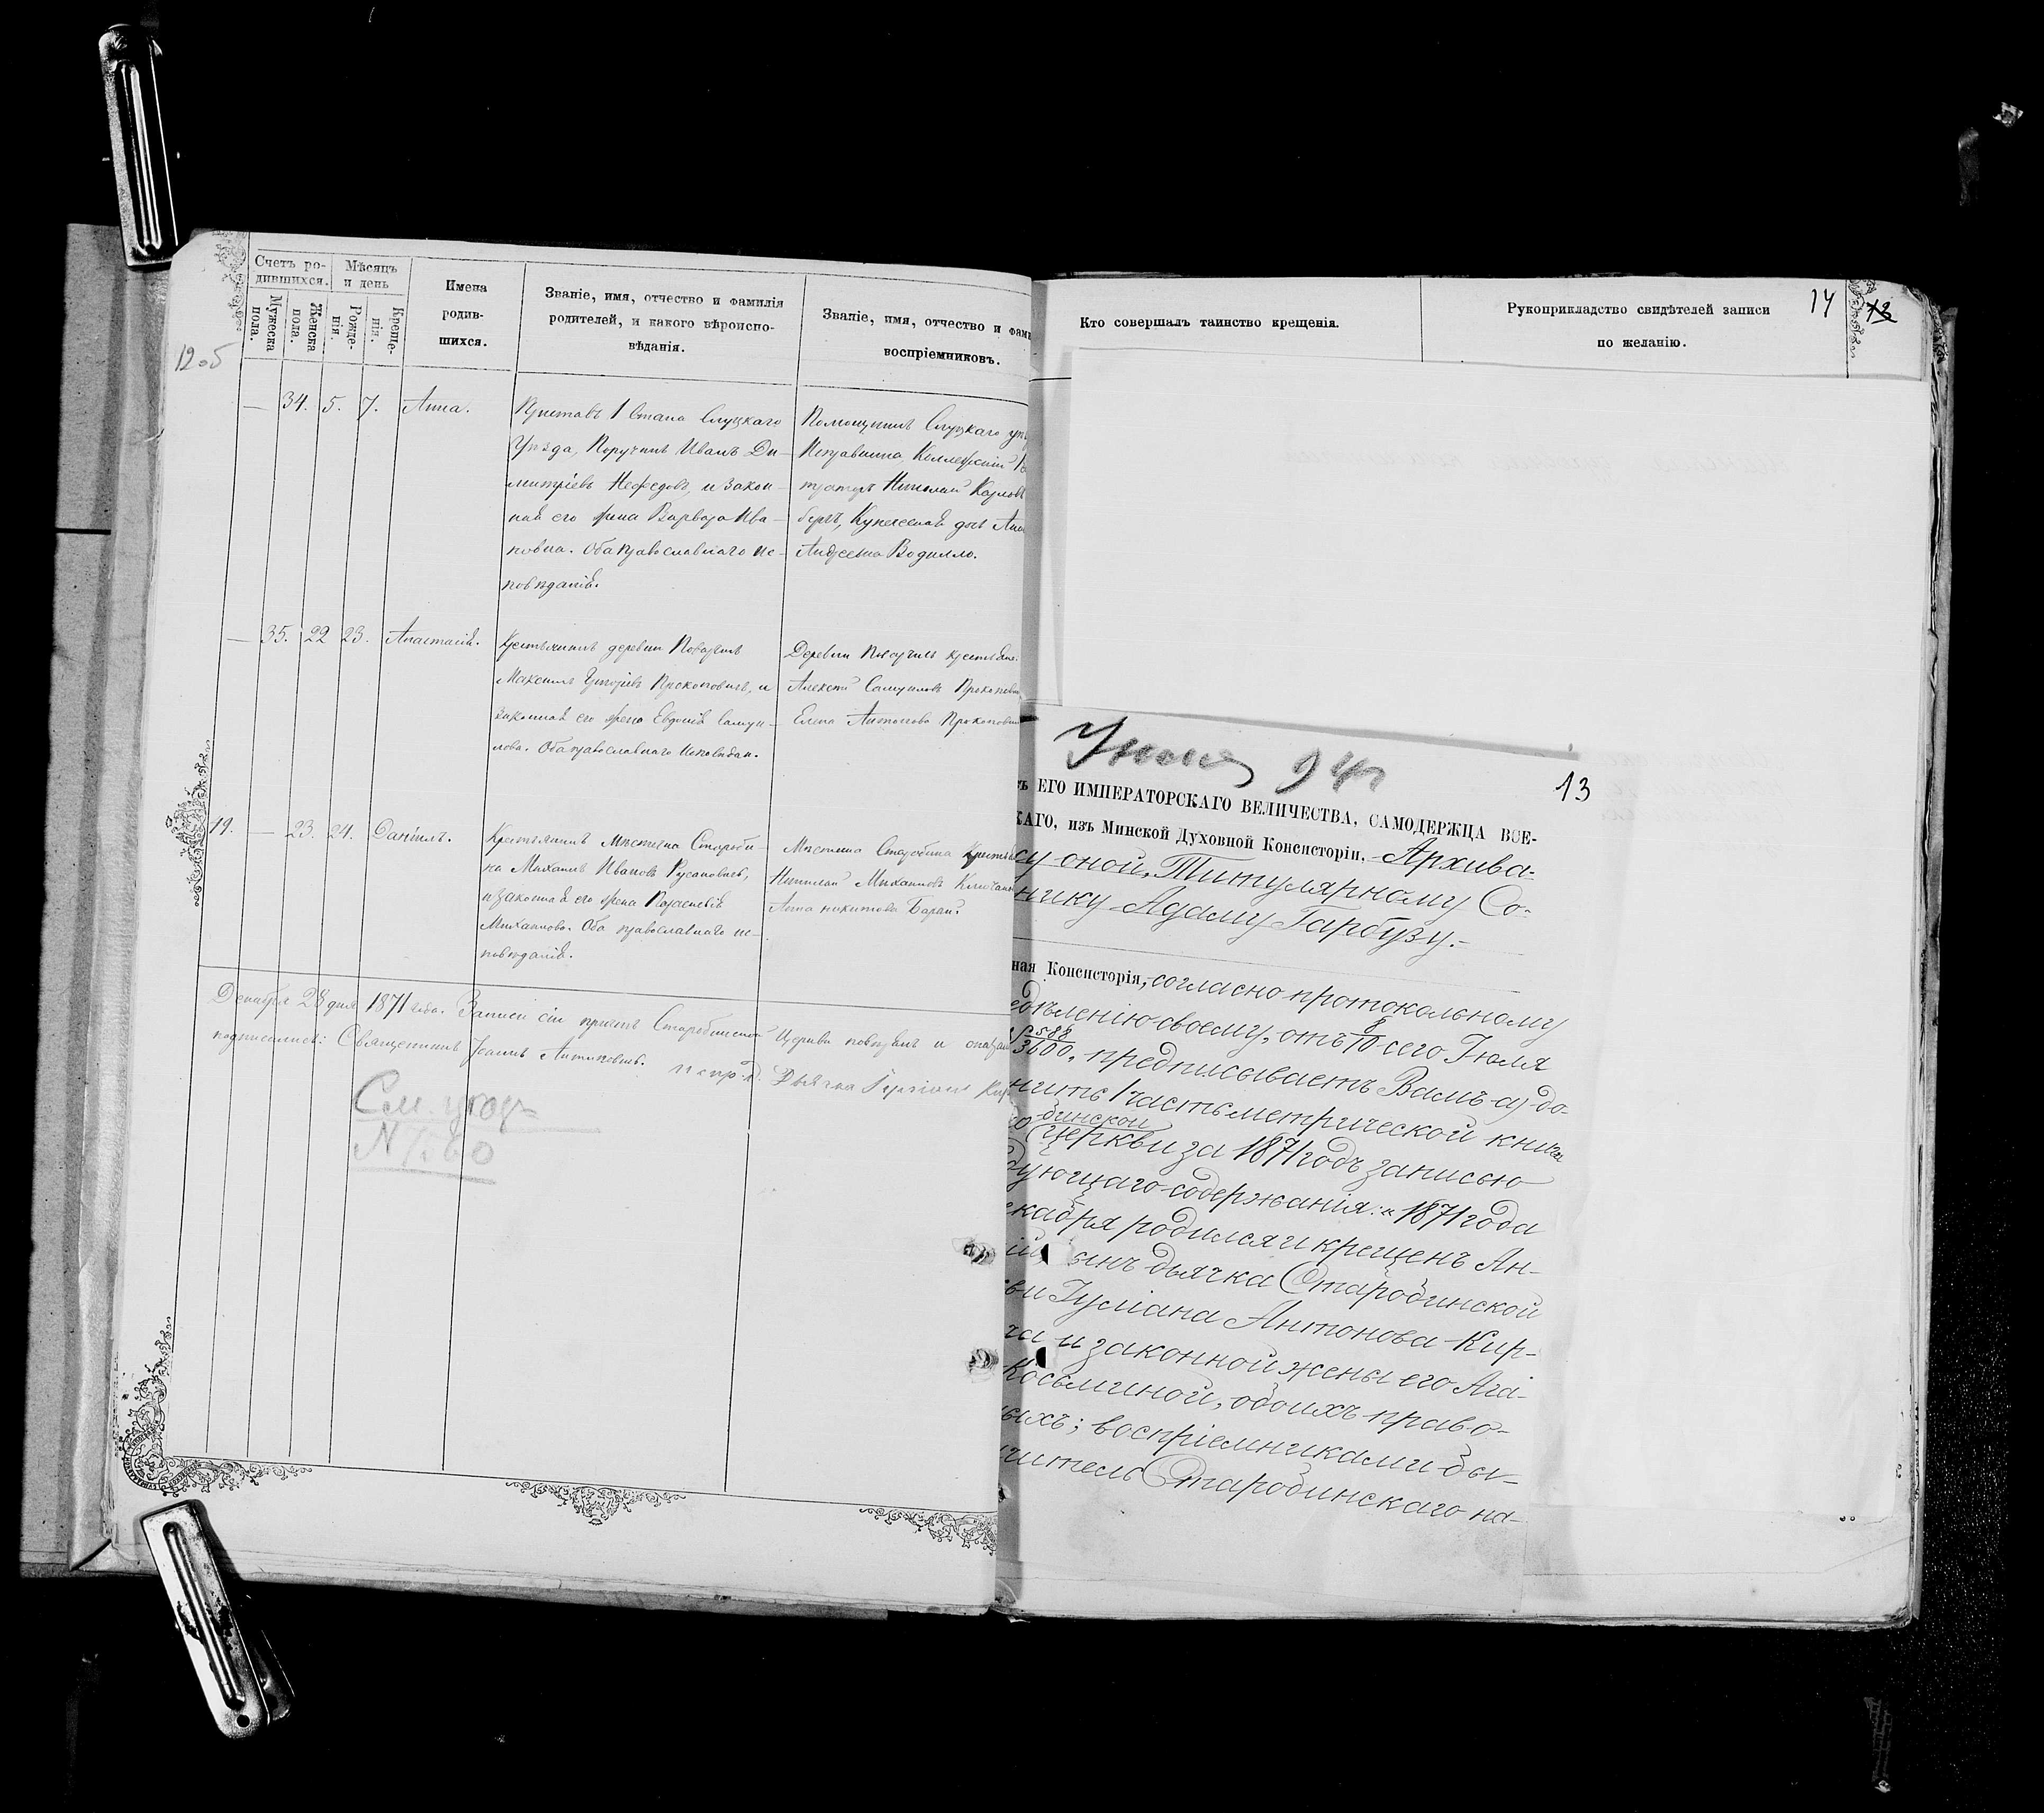 Счетъ ро-
дившихся.
Мужеска
пола.
Женска
пола.
Мѣсяцъ
и день
Рожде-
нія.
Креще-
нія.
Имена
родив-
шихся.
Званіе, имя, отчество и фамилія
родителей, и какого вѣроиспо-
вѣданія.
Званіе, имя, отчество и фам
воспріемниковъ.
— 34. 5. 7. Анна.
Приставъ 1 Стана Слуцкаго
Уѣзда, Поручикъ Иванъ Ди-
митріевъ Нефедовъ, и закон-
ная его жена Варвара Ива-
новна. Оба православнаго ис-
повѣданія.
Помощникъ Слуцкаго
Исправника, Коллежскій
Николай Карловъ
бергъ, Купеческая дочь
Андреевна Водилло.
— 35. 22 23. Анастасія.
Крестьянинъ деревни
Максимъ Григоріевъ Прокоповичъ, и
законная его жена Евдокія Самуи-
лова. Оба православнаго исповѣдан.
Деревни крестьяне
Алексѣй Самуиловъ
Елена Антонова
19. — 23. 24. Даніилъ.
Крестьянинъ Мѣстечка Староби-
на Михаилъ Ивановъ Русановичъ,
и законная его жена Параскевія
Михайлова. Оба православнаго ис-
повѣданія.
Мѣстечка Старобина
Николай Михайловъ
Анна Никитова Баран.
Декабря 28 дня 1871 года. Записи сіи причтъ Старобинской Церкви повѣрялъ и
подписались: Священникъ Іоаннъ
и спр. д. Дьячка Іуліанъ Кир
См. уход.
12об
Кто совершалъ таинство крещенія.
Рукоприкладство свидѣтелей записи
по желанію.
14 13
13
ъ ЕГО ИМПЕРАТОРСКАГО ВЕЛИЧЕСТВА, САМОДЕРЖЦА ВСЕ-
КАГО, изъ Минской Духовной Консисторіи. Архива-
су оной, Титулярному Со-
нику Адаму Гарбузу.—
ная Консисторія, согласно протокольному
едѣленію своему, отъ 8/10 сего Іюля
588/3600, предписываетъ Вамъ а) до-
нить 1 часть метрической книги
о бинской церкви за 1871 годъ записью
дующаго содержанія: „1871 года
екабря родился и крещенъ Ан-
ій сынъ дьячка Старобинской
ви Іуліана Антонова Кир-
ча и законной жены его Ага-
Косьминой, обоихъ право-
ыхъ; воспріемниками бы-
читель Старобинскаго на-